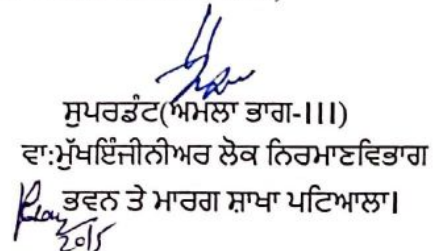 ਸੁਪਰਡੰਟ(ਅਮਲਾ ਭਾਗ-III)
ਵਾ:ਮੁੱਖਇੰਜੀਨੀਅਰ ਲੋਕ ਨਿਰਮਾਣਵਿਭਾਗ
ਭਵਨ ਤੇ ਮਾਰਗ ਸ਼ਾਖਾ ਪਟਿਆਲਾ।